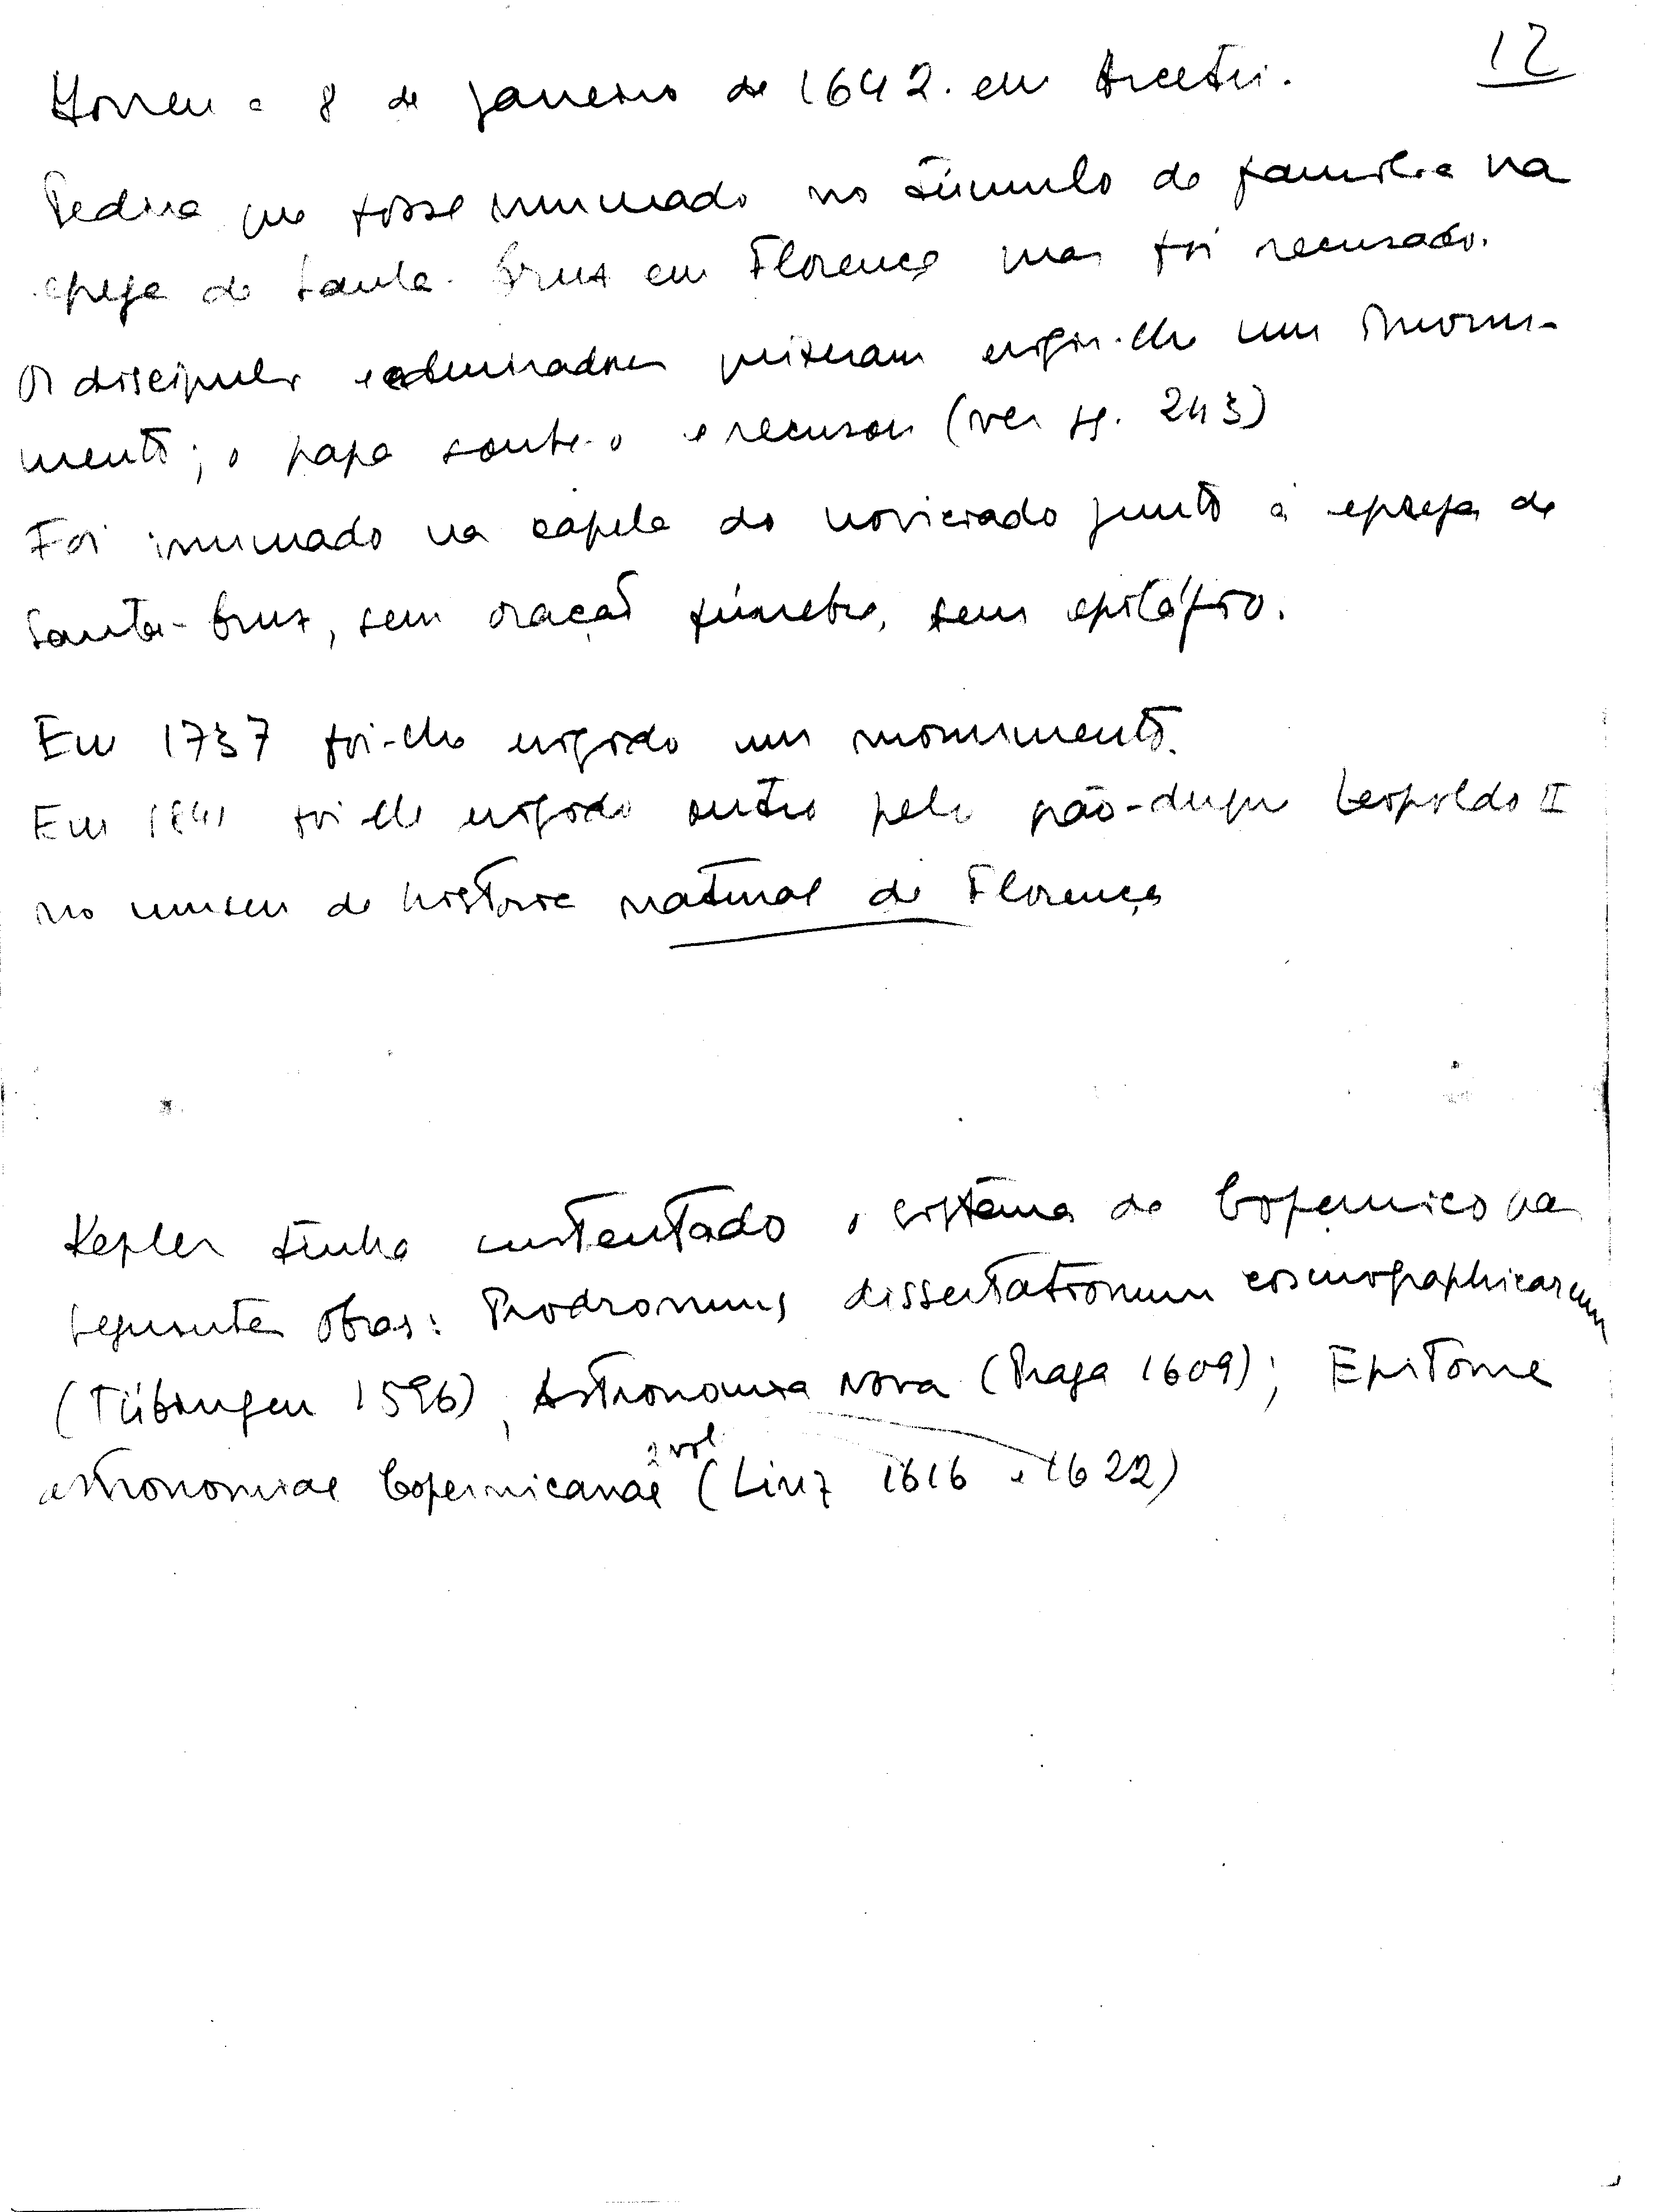 12
Morreu a 8 de Janeiro de 1642. em Arcetri.
Pedira que fosse inumado no túmulo de família na
egreja de Santa-Cruz em Florença mas foi recusado.
Os discipulos e admiradores quizeram erigir-lhe um monu-
mento; o papa soube-o e recusou (ver pg. 243)
Foi inumado na capela do noviciado junto à egreja de
Santa-Cruz, sem oração fúnebre, sem epitáfio.
Em 1737 foi-lhe erigido um monumento.
Em 1841 foi-lhe erigido outro pelo grão-duque Leopoldo II
no museu de história natural de Florença
Kepler tinha sustentado o sistema de Copernico nas
seguintes obras: Prodromus dissertationum cosmographicarum
(Tübingen 1596), Astronomia nova (Praga 1609); Epitome
astronomiae Copernicanae 2 vol (Linz 1616 e 1622)